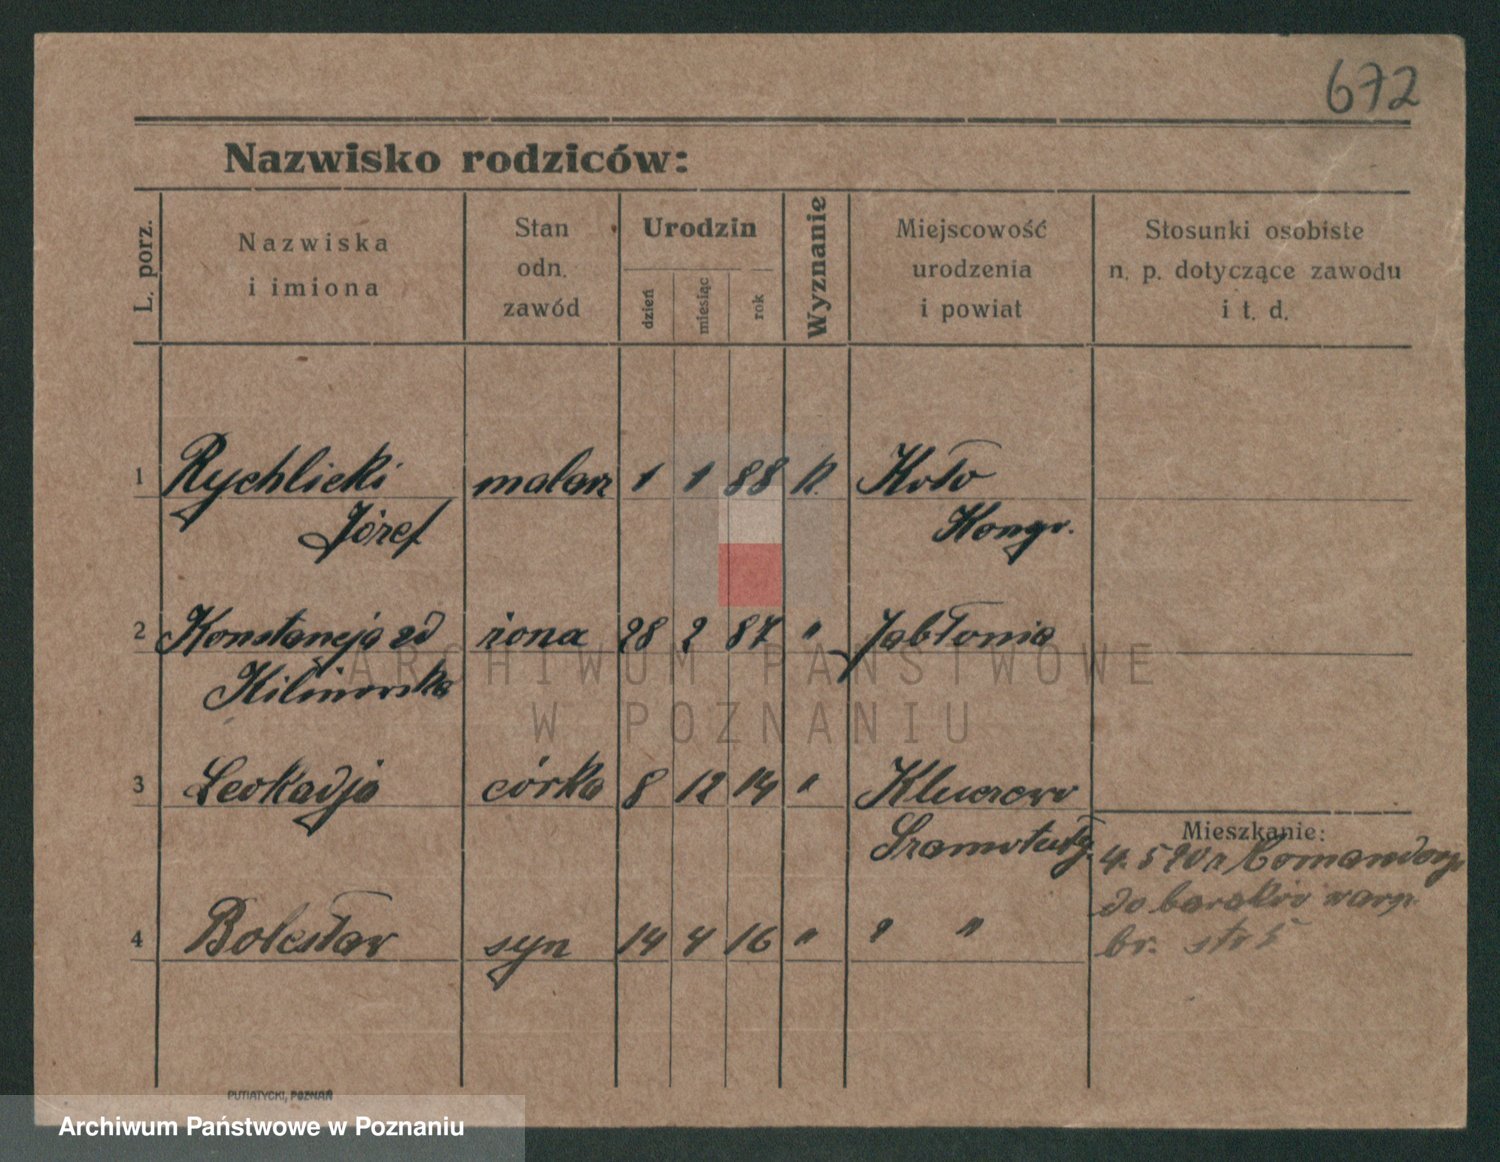 672
Nazwisko rodziców:
L. porz.
Nazwiska
i imiona
Stan
odn.
zawód
Urodzin
dzień
miesiąc
rok
Wyznanie
Miejscowość
urodzenia
i powiat
Stosunki osobiste
n. p. dotyczące zawodu
i t. d.
1 Rychlicki malarz 1 1 88 k. Koło
Józef Kongr.
2 Konstancja zd żona 28 2 87 " Jabłonia
Kilinowska
3 Leokadja córka 8 12 14 " Kluczewo
Szamotuły
Mieszkanie:
4. 5 20 z Comandorji
do baraków warp.
4 Bolesław syn 14 4 16 " " "
br. str 5
PUTIATYCKI, POZNAŃ
ARCHIWUM PAŃSTWOWE
W POZNANIU
Archiwum Państwowe w Poznaniu